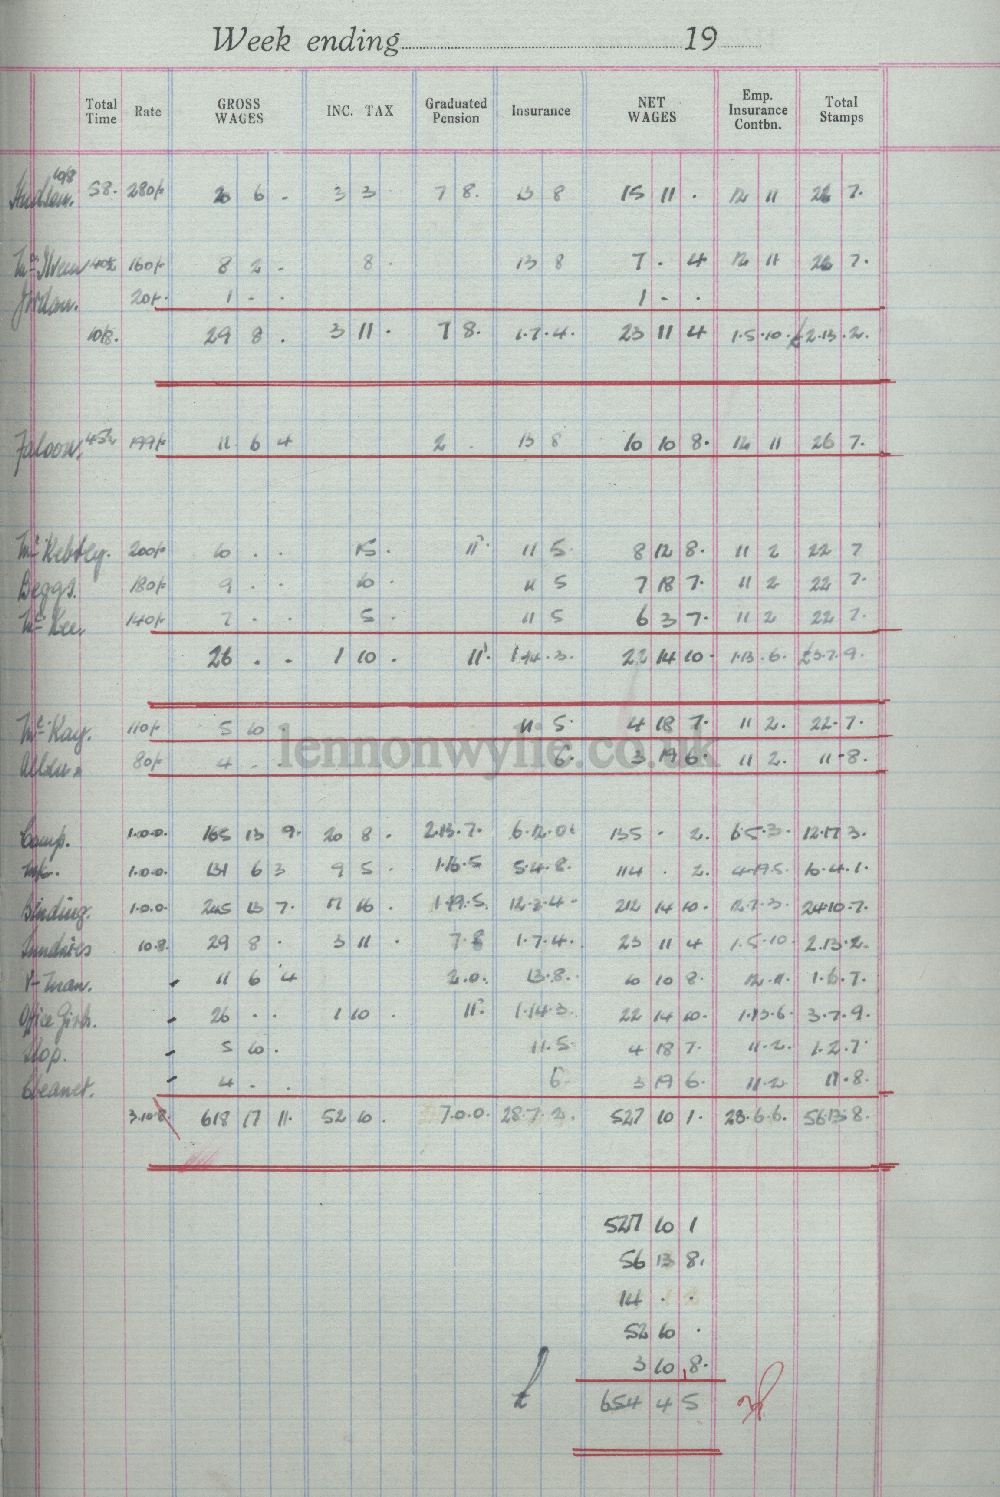 Week ending 19
Total Time Rate GROSS WAGES INC. TAX Graduated Pension Insurance NET WAGES Emp. Insurance Contbn. Total Stamps
10/8
58. 280/- 20 6 - 3 3 7 8. 13 8 15 11 . 12 11 26 7.
160/- 8 2 - 8 . 13 8 7 . 4 12 11 26 7.
Jordan. 20/- 1 - . 1 - .
10/8. 29 8 . 3 11 . 7 8. 1.7.4. 23 11 4 1.5.10. £2.13.2.
Faloon. 199/- 11 6 4 2 . 13 8 10 10 8. 12 11 26 7.
200/- 10 . . 15 . 11. 11 5 8 12 8. 11 2 22 7
Beggs. 180/- 9 . . 10 . 11 5 7 18 7. 11 2 22 7.
McKee 140/- 7 . . 5 . 11 5 6 3 7. 11 2 22 7.
26 . . 1 10 . 11. 1.14.3. 22 14 10. 1.13.6. £3.7.9.
McKay. 110/- 5 10 11 5. 4 18 7. 11 2. 22.7.
80/- 4 - . 6. 3 19 6. 11 2. 11-8.
lennonwylie.co.uk
Comp. 1.0.0. 165 13 9. 20 8 . 2.13.7. 6.12.0. 135 - 2. 6.5.3. 12.17 3.
1.0.0. 131 6 3 9 5 . 1.16.5 5.4.8. 114 . 2. 4.19.5. 10.4.1.
Binding. 1.0.0. 245 13 7. 17 16 . 1.19.5. 12.3.4. 212 14 10. 12.7.3. 24.10.7.
Sundries 10.8. 29 8 . 3 11 . 7.8 1.7.4. 23 11 4 1.5.10. 2.13.2.
V-man. 11 6 4 2.0. 13.8. 10 10 8. 12.11. 1.6.7.
Office Girls. 26 . . 1 10 . 11. 1.14.3. 22 14 10. 1.13.6. 3.7.9.
5 10. 11.5. 4 18 7. 11.2. 1.2.7.
Cleaner. 4 . . 6. 3 19 6. 11.2 11.8.
3.10.8. 618 17 11. 52 10 . 7.0.0. 28.7.2. 527 10 1. 28.6.6. 56 13.8.
527 10 1
56 13 8.
14 . .
52 10 .
3 10 8.
£ 654 4 5